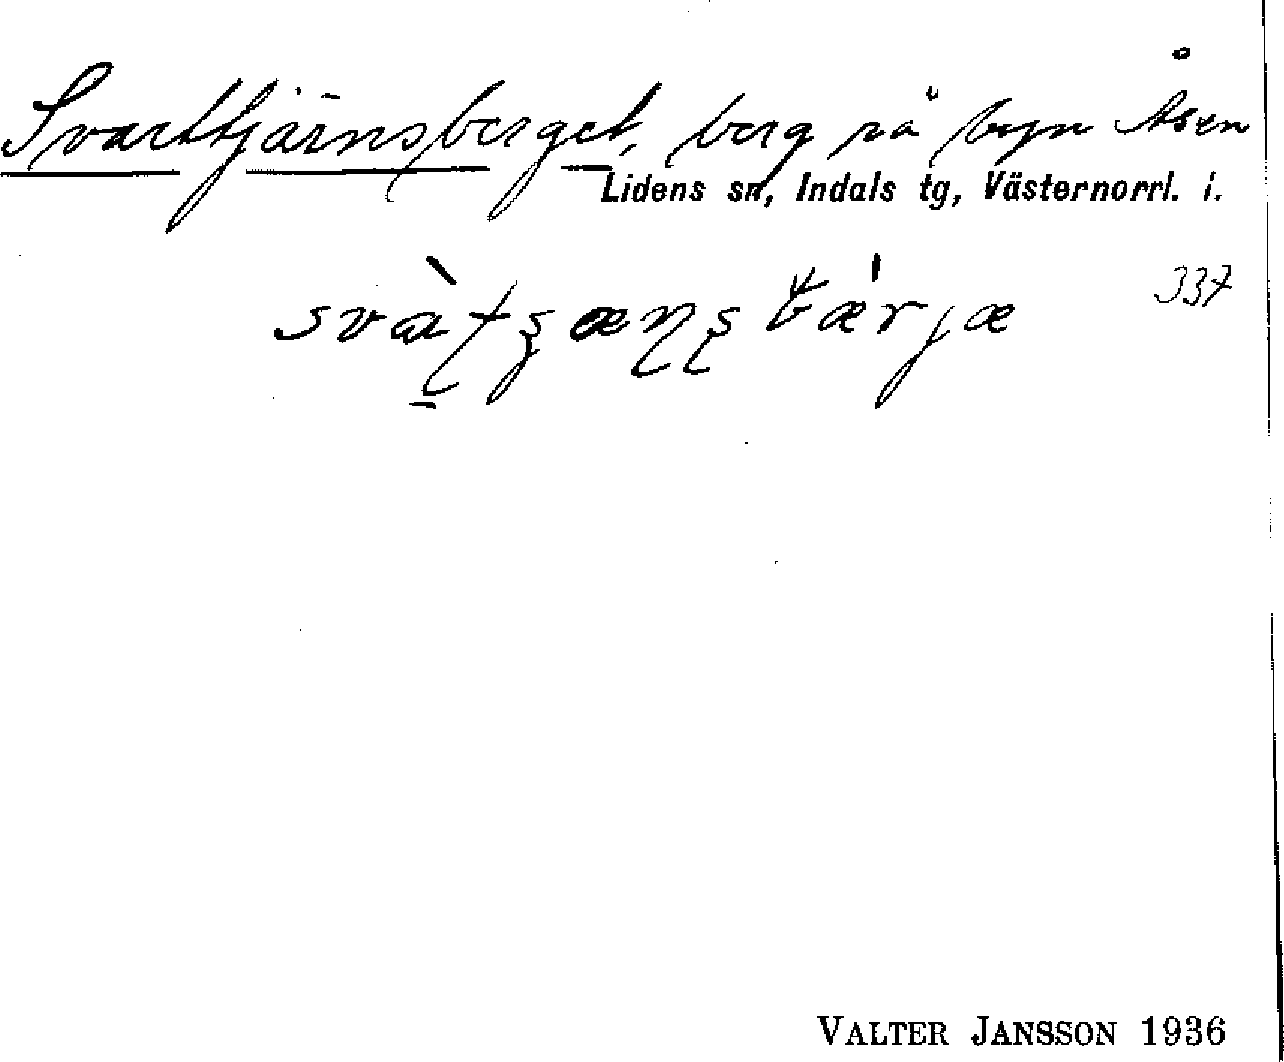 Svarttjärnsberget, berg på byn Åsen
Lidens sn, Indals tg, Västernorrl. l.
337
VALTER JANSSON 1936